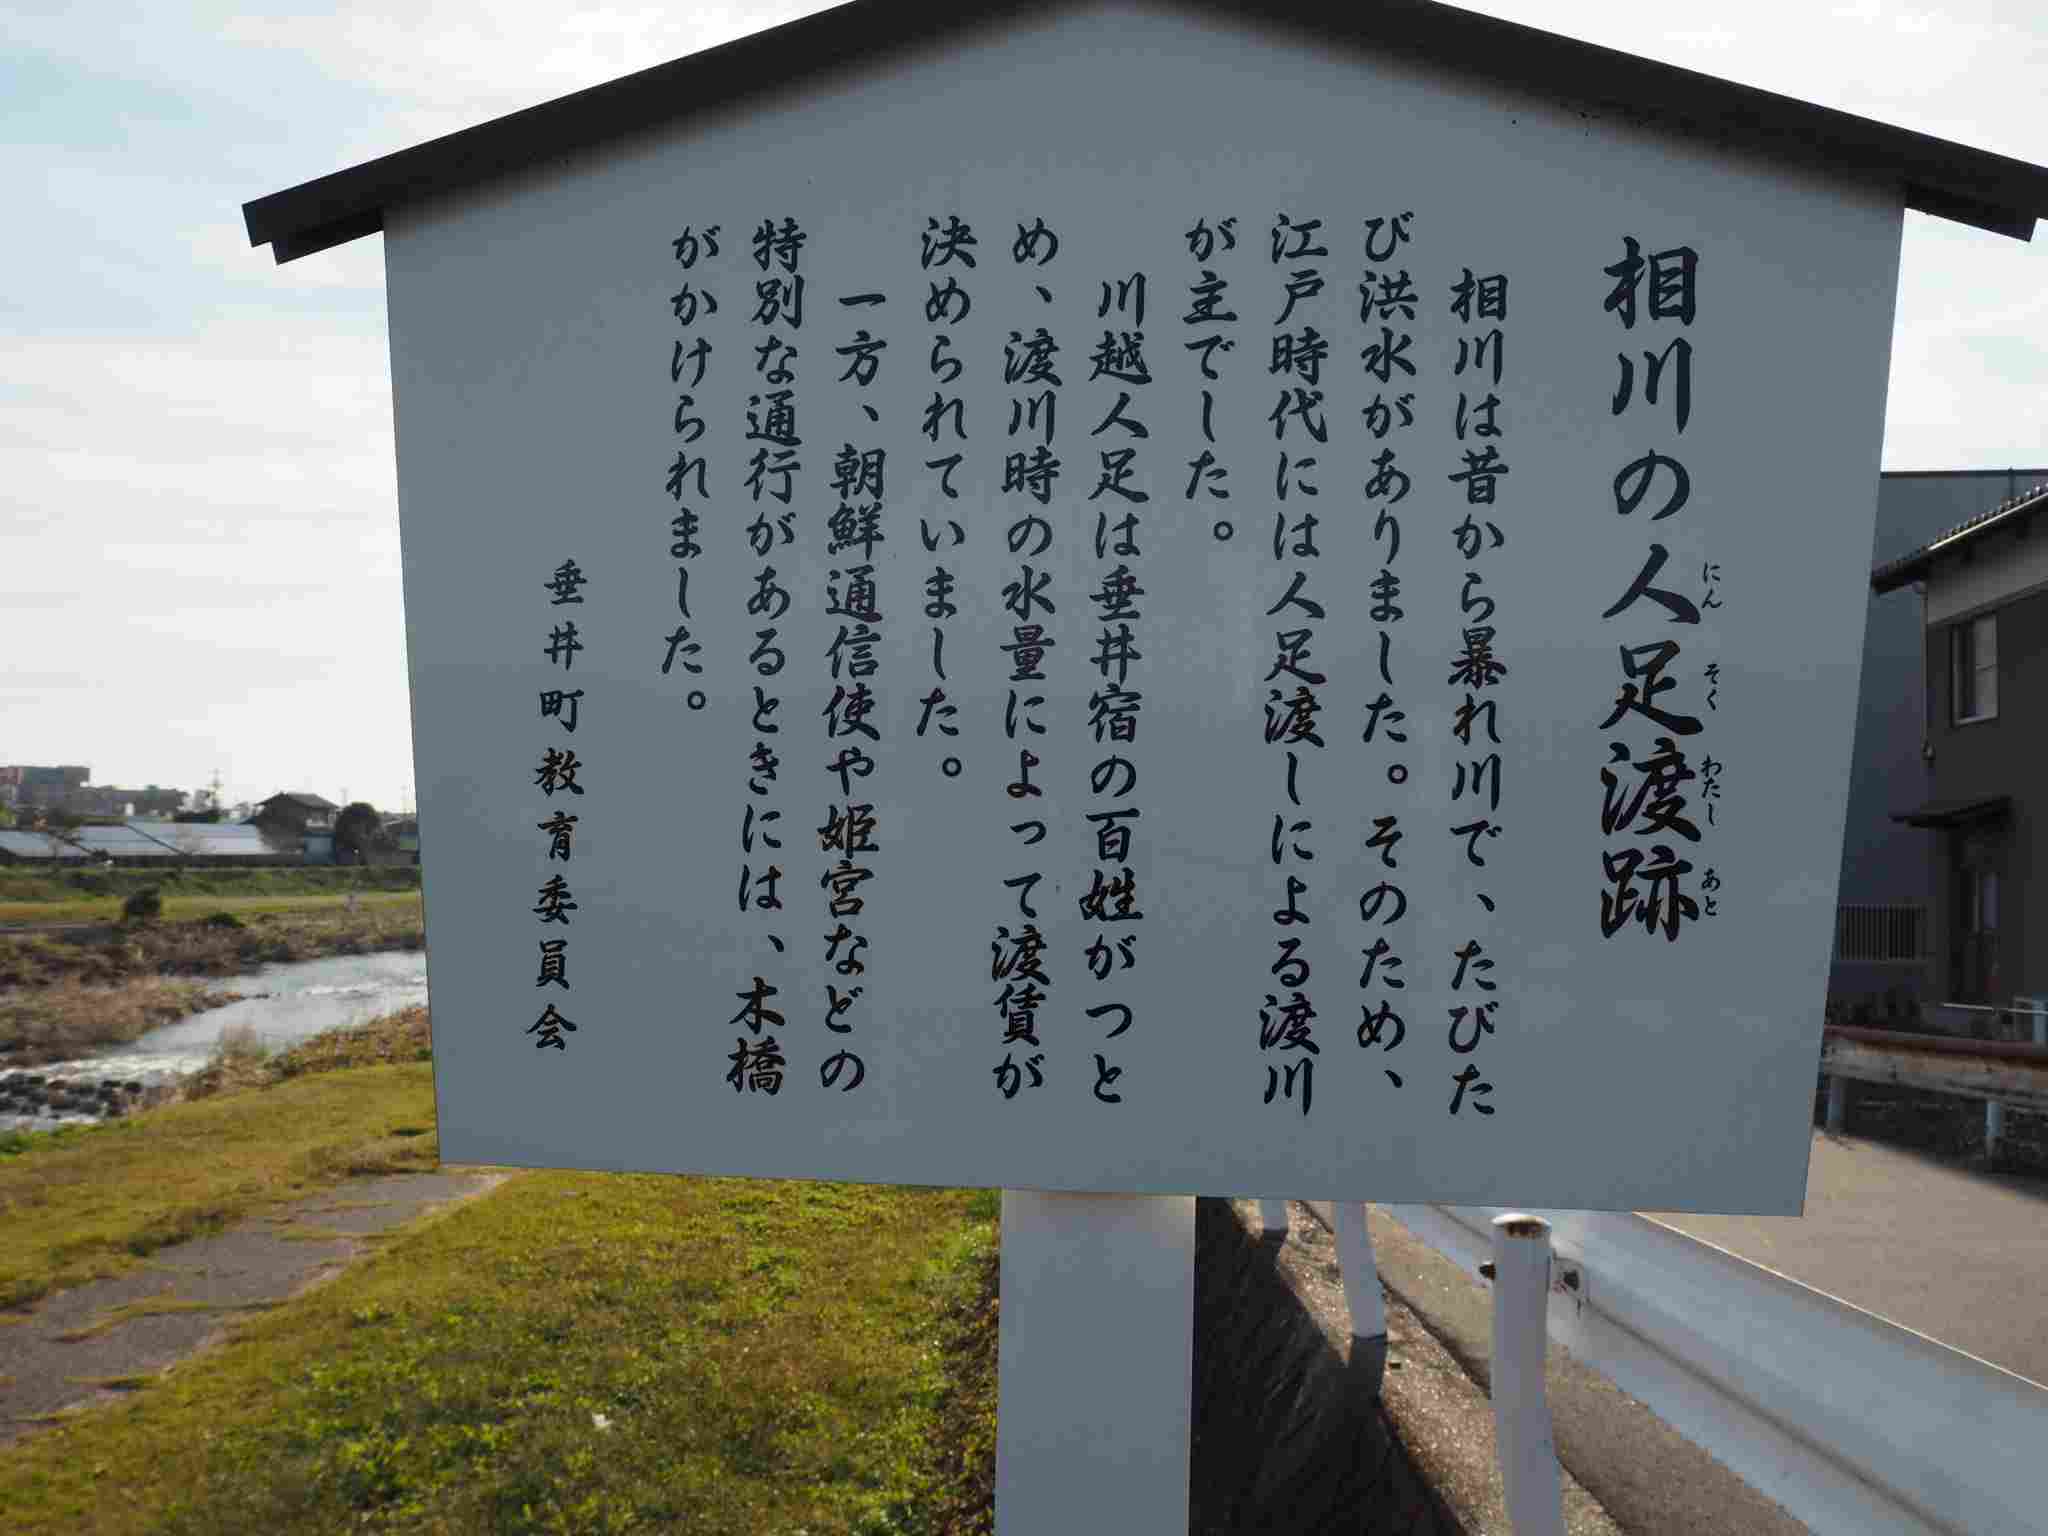 相川の人足渡跡
にん そく わたし あと
相川は昔から暴れ川で、たびた
び洪水がありました。そのため、
江戸時代には人足渡しによる渡川
が主でした。
川越人足は垂井宿の百姓がつと
め、渡川時の水量によって渡賃が
決められていました。
一方、朝鮮通信使や姫宮などの
特別な通行があるときには、木橋
がかけられました。
垂井町教育委員会